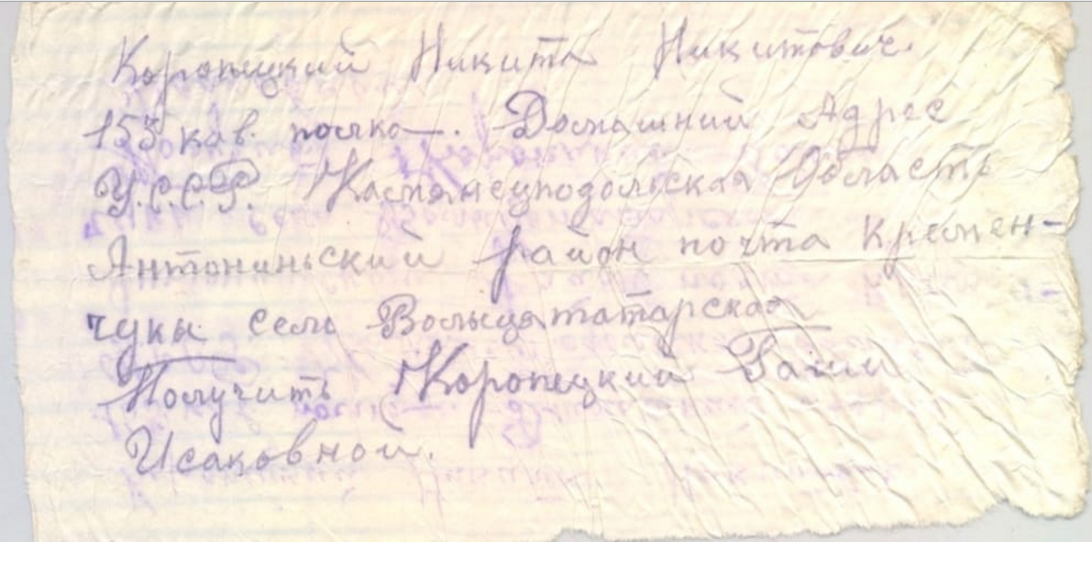 Коропецкий Никита Никитович.
153 кав. полка—. Домашний Адрес
У.С.С.Р. Каменецподольская Область
Антониньский район почта Кремен-
чуки село Волыцятатарская
Получить Коропецкий
Исаковной.